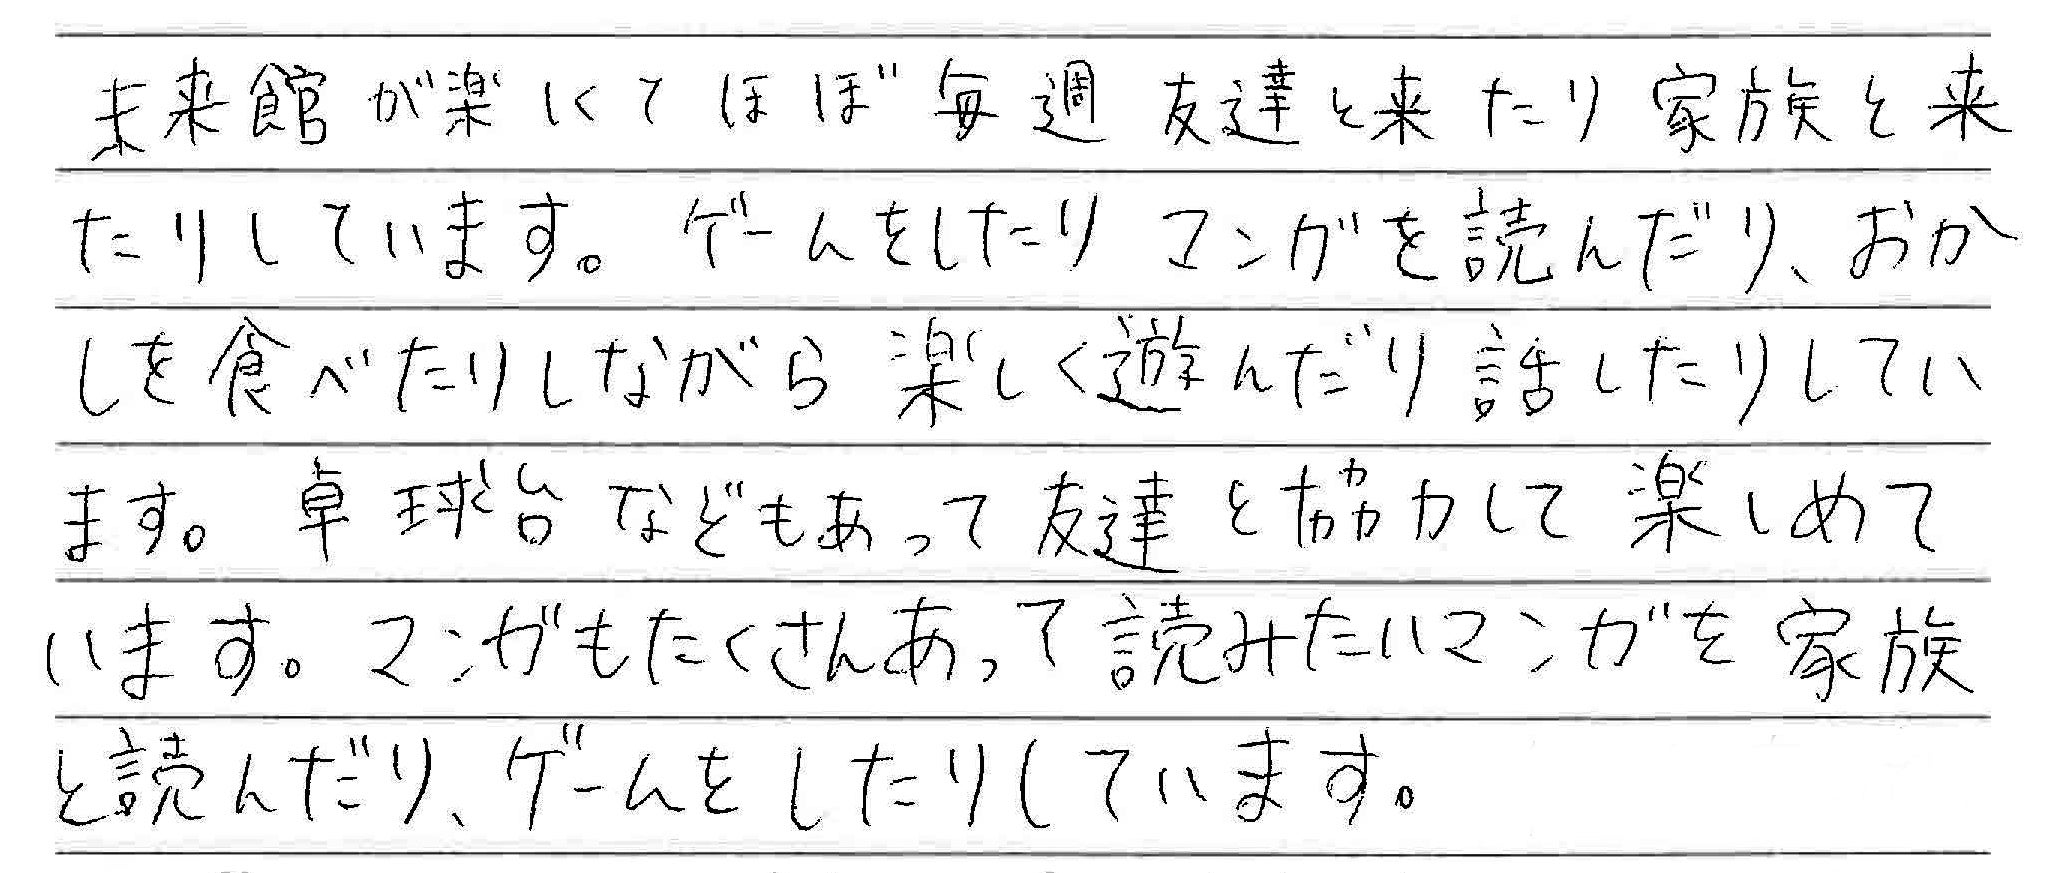 未来館が楽しくてほぼ毎週友達と来たり家族と来
たりしています。ゲームをしたりマンガを読んだり、おか
しを食べたりしながら楽しく遊んだり話したりしてい
ます。卓球台などもあって友達と協力して楽しめて
います。マンガもたくさんあって読みたいマンガを家族
と読んだり、ゲームをしたりしています。